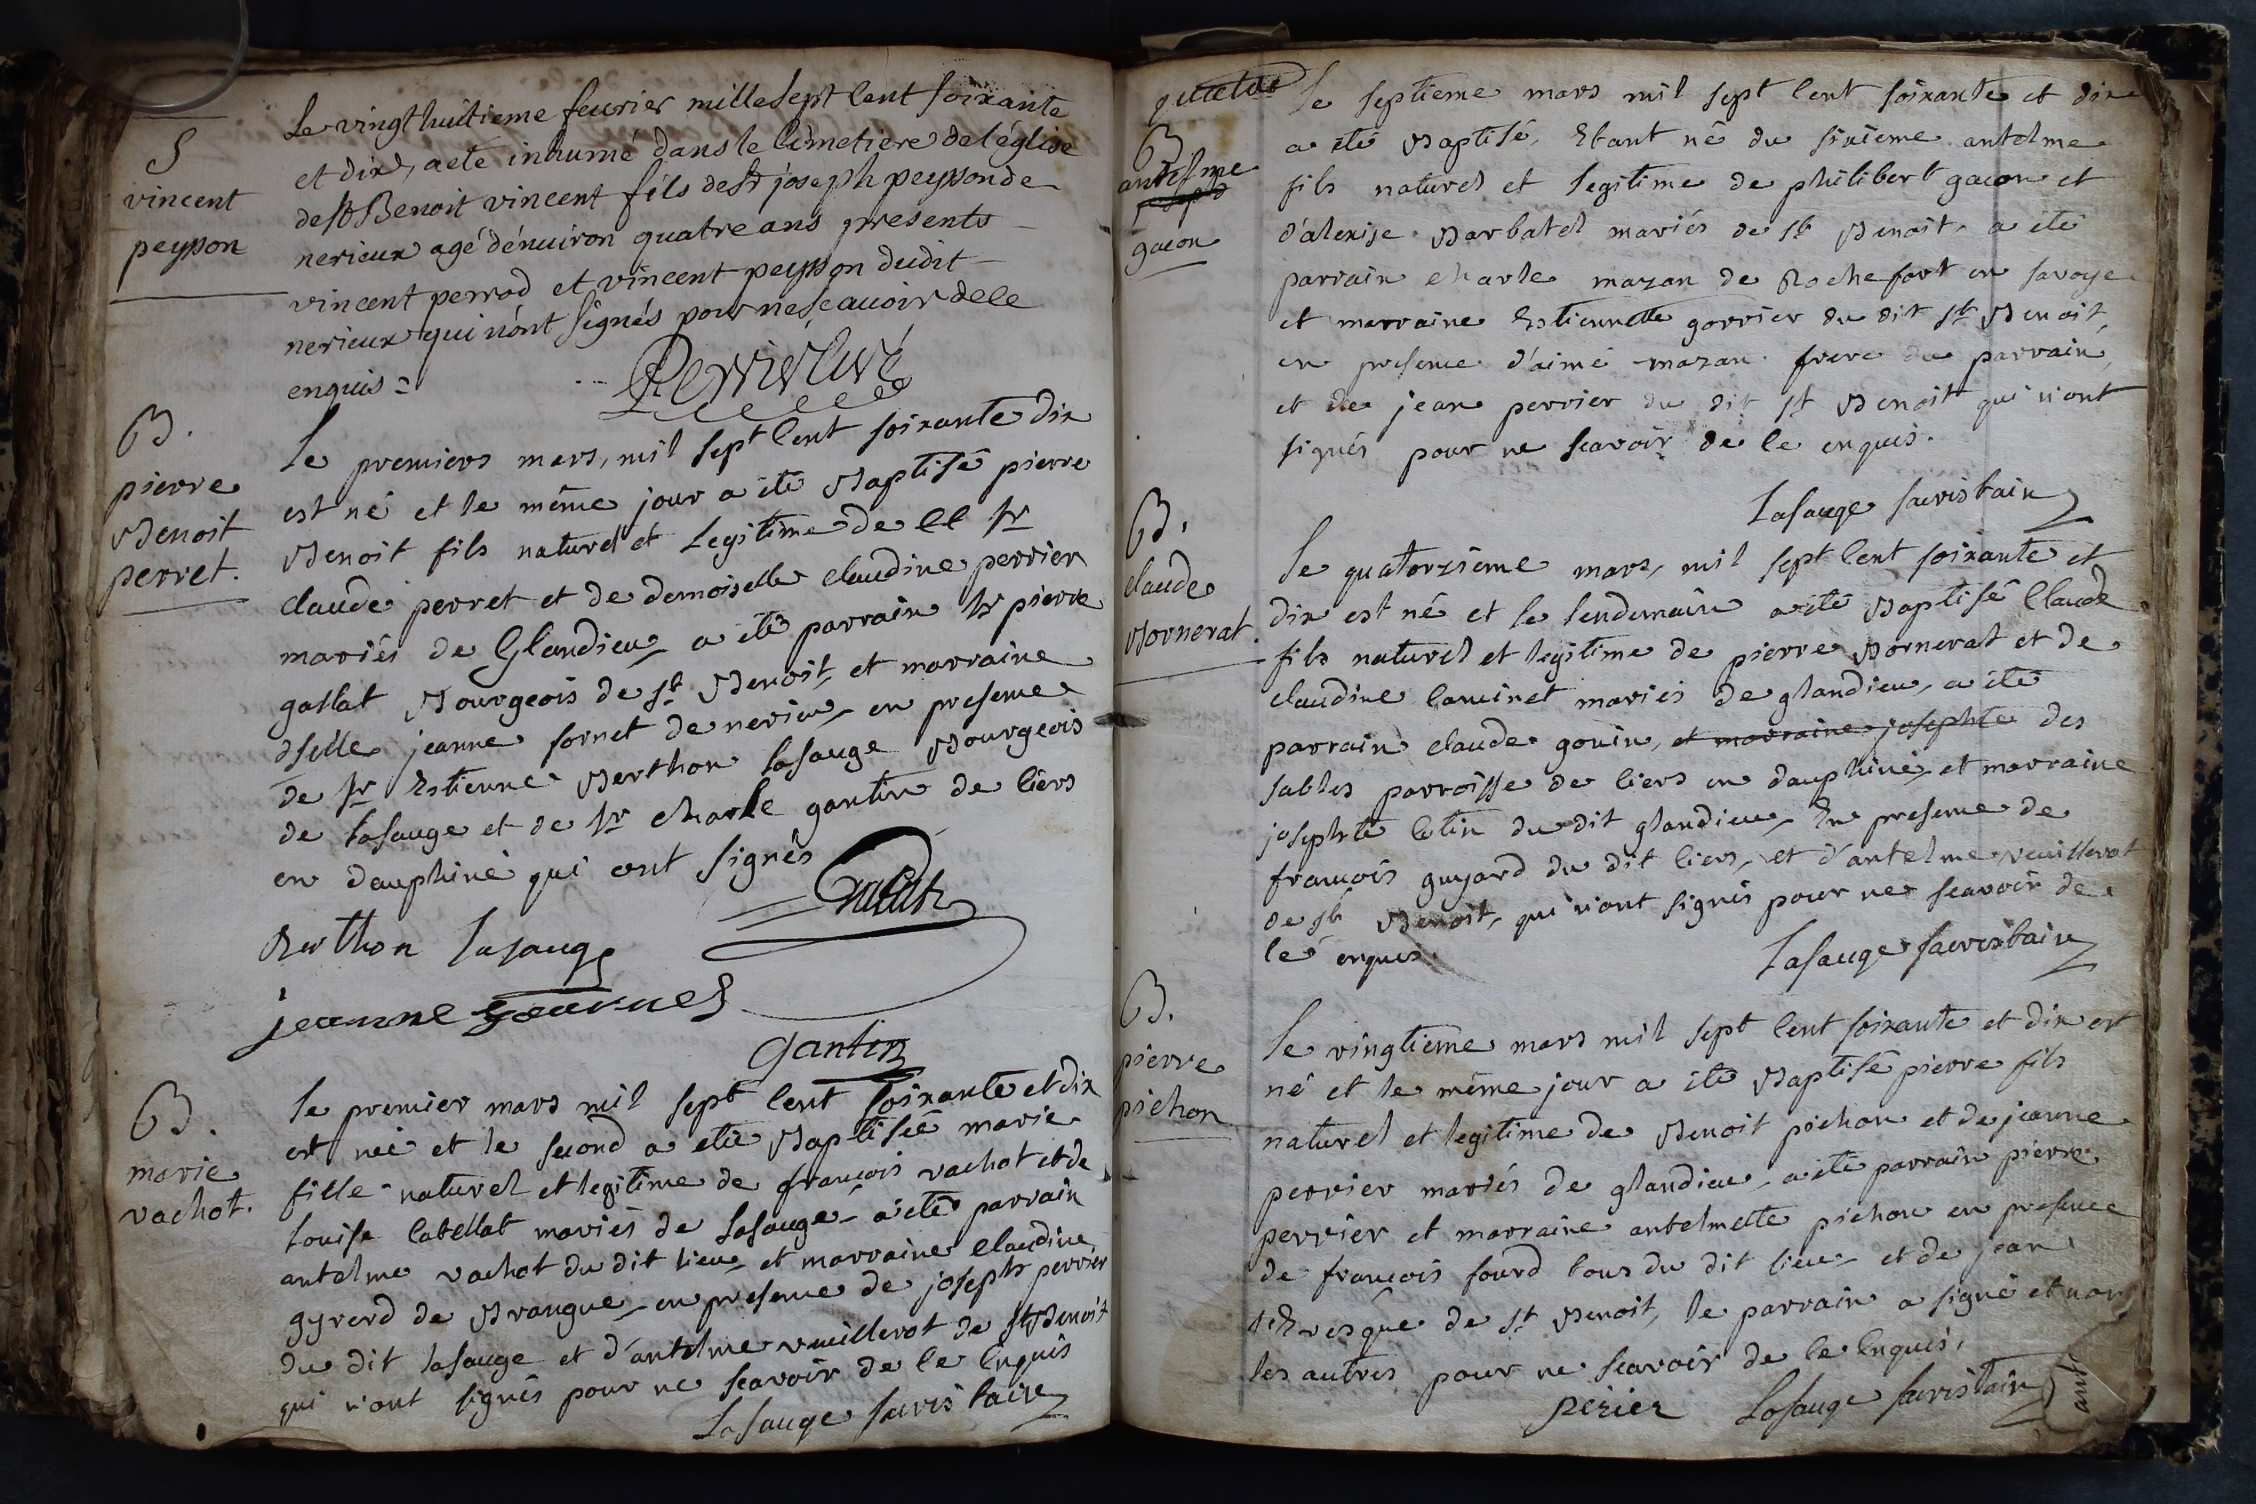 S
vincent
peysson
Le vingt huitieme feurier mille sept Cent soixante
et dix, a eté inhumé dans le Cimetiere de l'église
de st Benoit vincent fils de st joseph peysson de
nerieux agé d'enuiron quatre ans presents
vincent perrod et vincent peysson dudit
nerieux qui n'ont signés pour ne sçauoir de le
enquis
Perrier Curé
B.
pierre
Benoit
perret.
Le premiers mars, mil sept Cent soixante dix
est né et le même jour a été Baptisé pierre
Benoit fils naturel et Legitime de sr
claude perret et de demoiselle claudine perrier
mariés de Glandieu, a été parrain sr pierre
gallat Bourgeois de st Benoit, et marraine
dselle jeanne fornet de nerieu, en presence
de sr Estienne Berthon Lasauge Bourgeois
de Lasauge et de sr charle gantin de liers
en dauphiné qui ont signés
Galat
Berthon Lasauge
jeanne
gantin
B.
marie
vachot.
Le premier mars mil sept Cent soixante et dix
est née et le second a eté Baptisée marie
fille naturel et legitime de françois vachot et de
Louise Catellat mariés de Lasauge, a eté parrain
antelme vachot du dit lieu, et marraine claudine
gyrerd de Brangue, en presence de joseph perrier
du dit Lasauge et d'antelme vuillerot de st Benoit
qui n'ont signés pour ne scavoir de le Enquis
Lasauge sacristain
B
antelme
gacon
Le septieme mars mil sept Cent soixante et dix
a été Baptisé, Etant né du sixieme antelme
fils naturel et legitime de philibert gacon et
d'alexise Barbatel mariés de st Benoit, a eté
parrain charle mazan de Rochefort en savoye
et marraine Estiennette gorrier du dit st Benoit,
en presence d'aimé mazan frere du parrain,
et de jean perrier du dit st Benoit qui n'ont
signés pour ne scavoir de le enquis.
Lasauge sacristain
B.
claude
Bornerat.
Le quatorzième mars, mil sept Cent soixante et
dix est né et le lendemain a été Baptisé Claude
fils naturel et legitime de pierre Bornerat et de
claudine Caminet mariés de glandieu, a été
parrain claude gouin, et marraine josephte des
sables parroisse de liers en dauphiné, et marraine
josephte Cotin du dit glandieu, En presence de
françois guyard du dit liers, et d'antelme vuillerot
de st Benoit, qui n'ont signés pour ne scavoir de
le enquis.
Lasauge sacristain
B.
pierre
pichon
Le vingtieme mars mil sept Cent soixante et dix est
né et le même jour a été Baptisé pierre fils
naturel et legitime de Benoit pichon et de jeanne
perrier mariés de glandieu, a été parrain pierre
perrier et marraine antelmette pichon en presence
de françois fourd tous du dit lieu, et de jean
de st Benoit, le parrain a signé et non
les autres pour ne scavoir de le Enquis,
perier Lasauge sacristain
ant